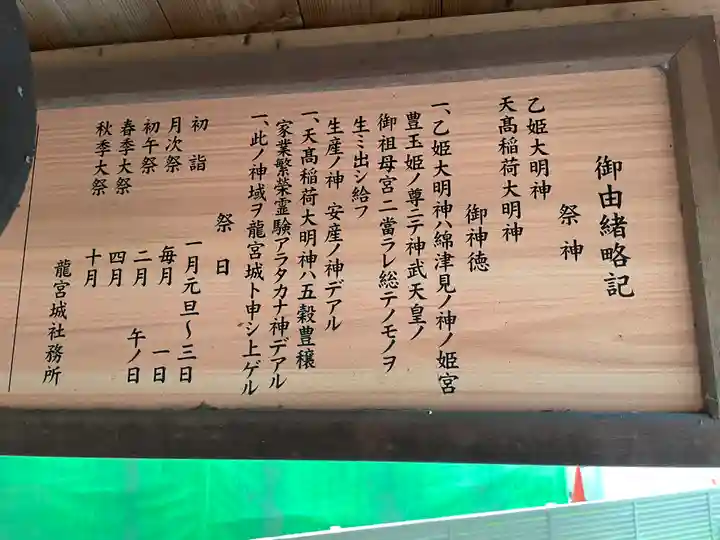 御由緒略記
祭神
乙姫大明神
天髙稲荷大明神
御神徳
一、乙姫大明神ハ綿津見ノ神ノ姫宮
豊玉姫ノ尊ニテ神武天皇ノ
御祖母宮ニ當ラレ総テノモノヲ
生ミ出シ給フ
生産ノ神 安産ノ神デアル
一、天髙稲荷大明神ハ五穀豊穣
家業繁榮霊験アラタカナ神デアル
一、此ノ神域ヲ龍宮城ト申シ上ゲル
祭日
初詣 一月元旦～三日
月次祭 毎月 一日
初午祭 二月 午ノ日
春季大祭 四月
秋季大祭 十月
龍宮城社務所